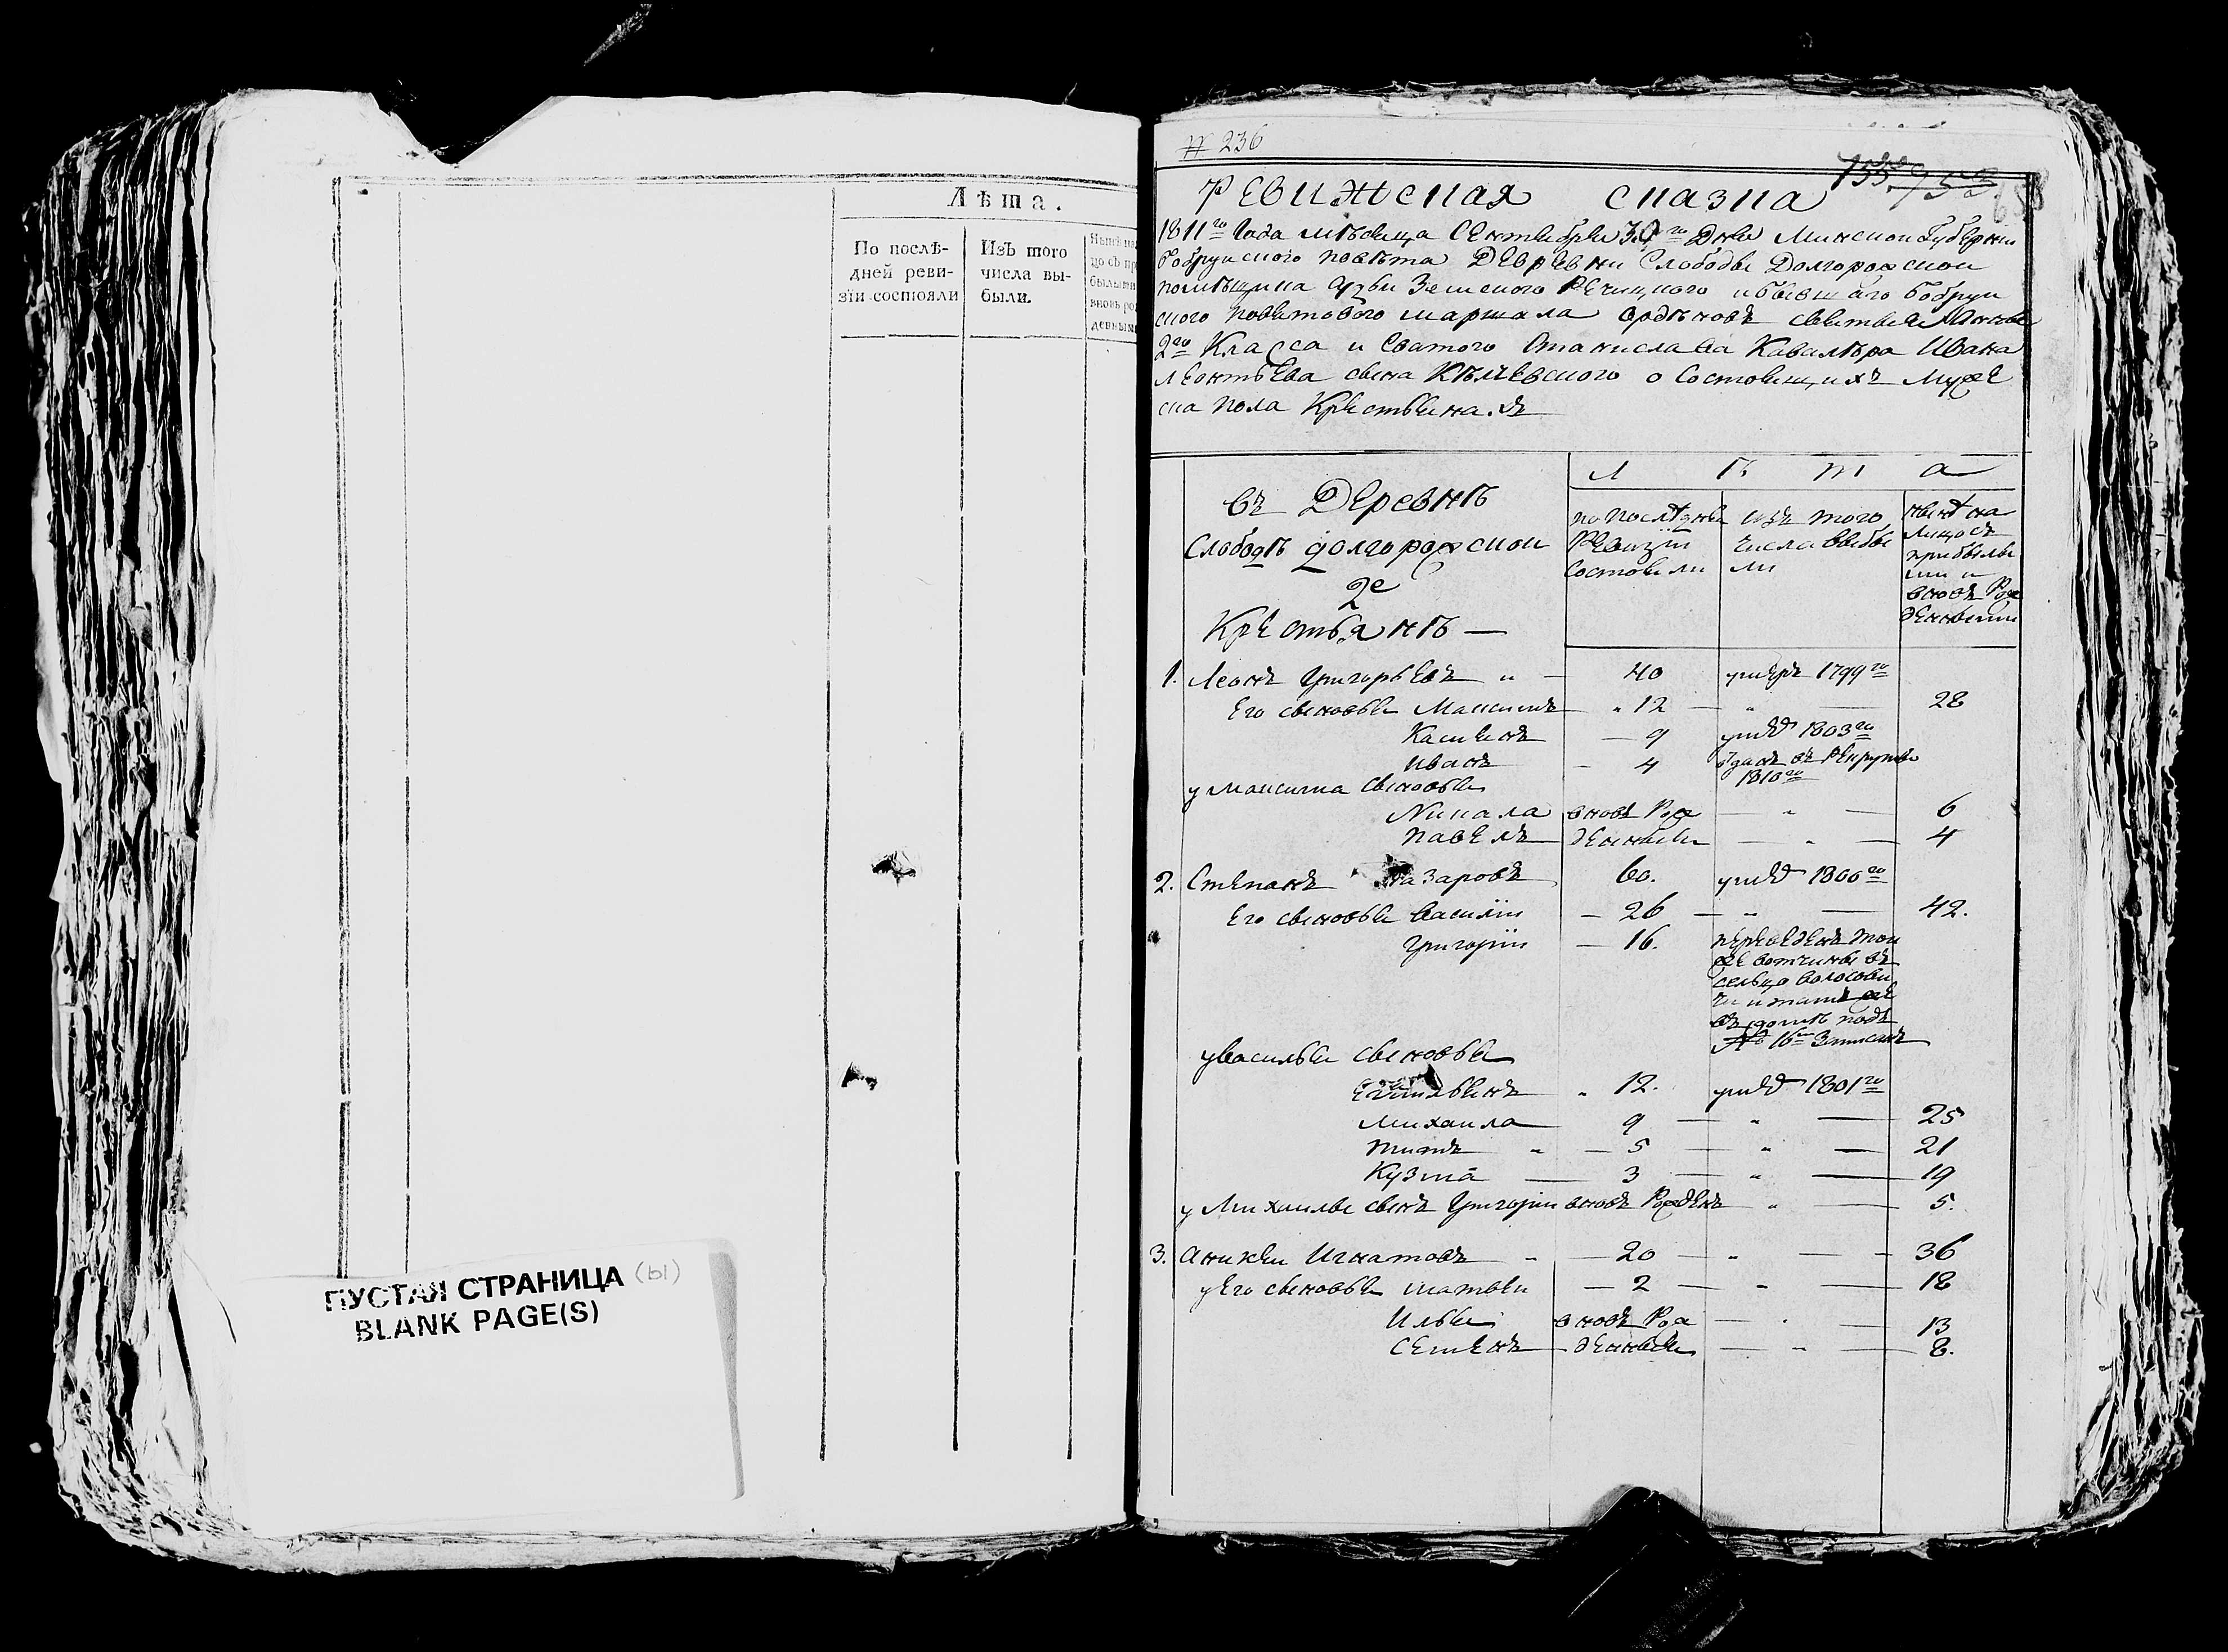 Лѣта.
По послѣ-
дней реви-
зіи состояли
Изъ того
числа вы-
были.
ПУСТАЯ СТРАНИЦА (ы)
BLANK PAGE(S)
№ 236
Ревижская сказка
1811го Года мѣсяца Сентября 30го Дня Минской Губернии
Бобруйского повѣта Деревни Слободы Долгорожской
помѣщика Судьи Земского Речицкого и бывшаго Бобруй
ского поветового маршала орденовъ святыя Анны
2го Класса и Святого Станислава Кавалѣра Ивана
Леонтьева сына Кѣлчевского о Состоящихъ мужес
ка пола Крестьянахъ
въ Деревнѣ
Слободѣ долгорожской
2е
Крестьянѣ —
Лѣта
по послѣдней
Ревизіи
Состояли
изъ того
числа выбы
ли
нынѣ на
лицо съ
прибылы
ми и
вновь Рож
денными
1. Леонъ Григорьевъ 40 умеръ 1799го
Его сыновья Максимъ 12 28
Касьянъ 9 умер 1803го
Иванъ 4 Отданъ въ Рекруты
1810го
у Максима сыновья
Микала вновь Рож 6
Павелъ денныя 4
2. Степанъ Назаровъ 60. умер 1800го
Его сыновья Василій 26 42.
Григорій 16. переведенъ той
же вотчины въ
сельцо Волосови
чи и тамъ же
въ домѣ подъ
№ 16м Записанъ
у Василья сыновья
12. умер 1801го
Михайла 9 25
Титъ 5 21
Кузма 3 19
у Михайлы сынъ Григорій вновь Рожденъ 5.
3. Аникей Игнатовъ 20 36
у Его сыновья Матвей 2 18
Илья вновь Рож 13
Семенъ денныя 8.